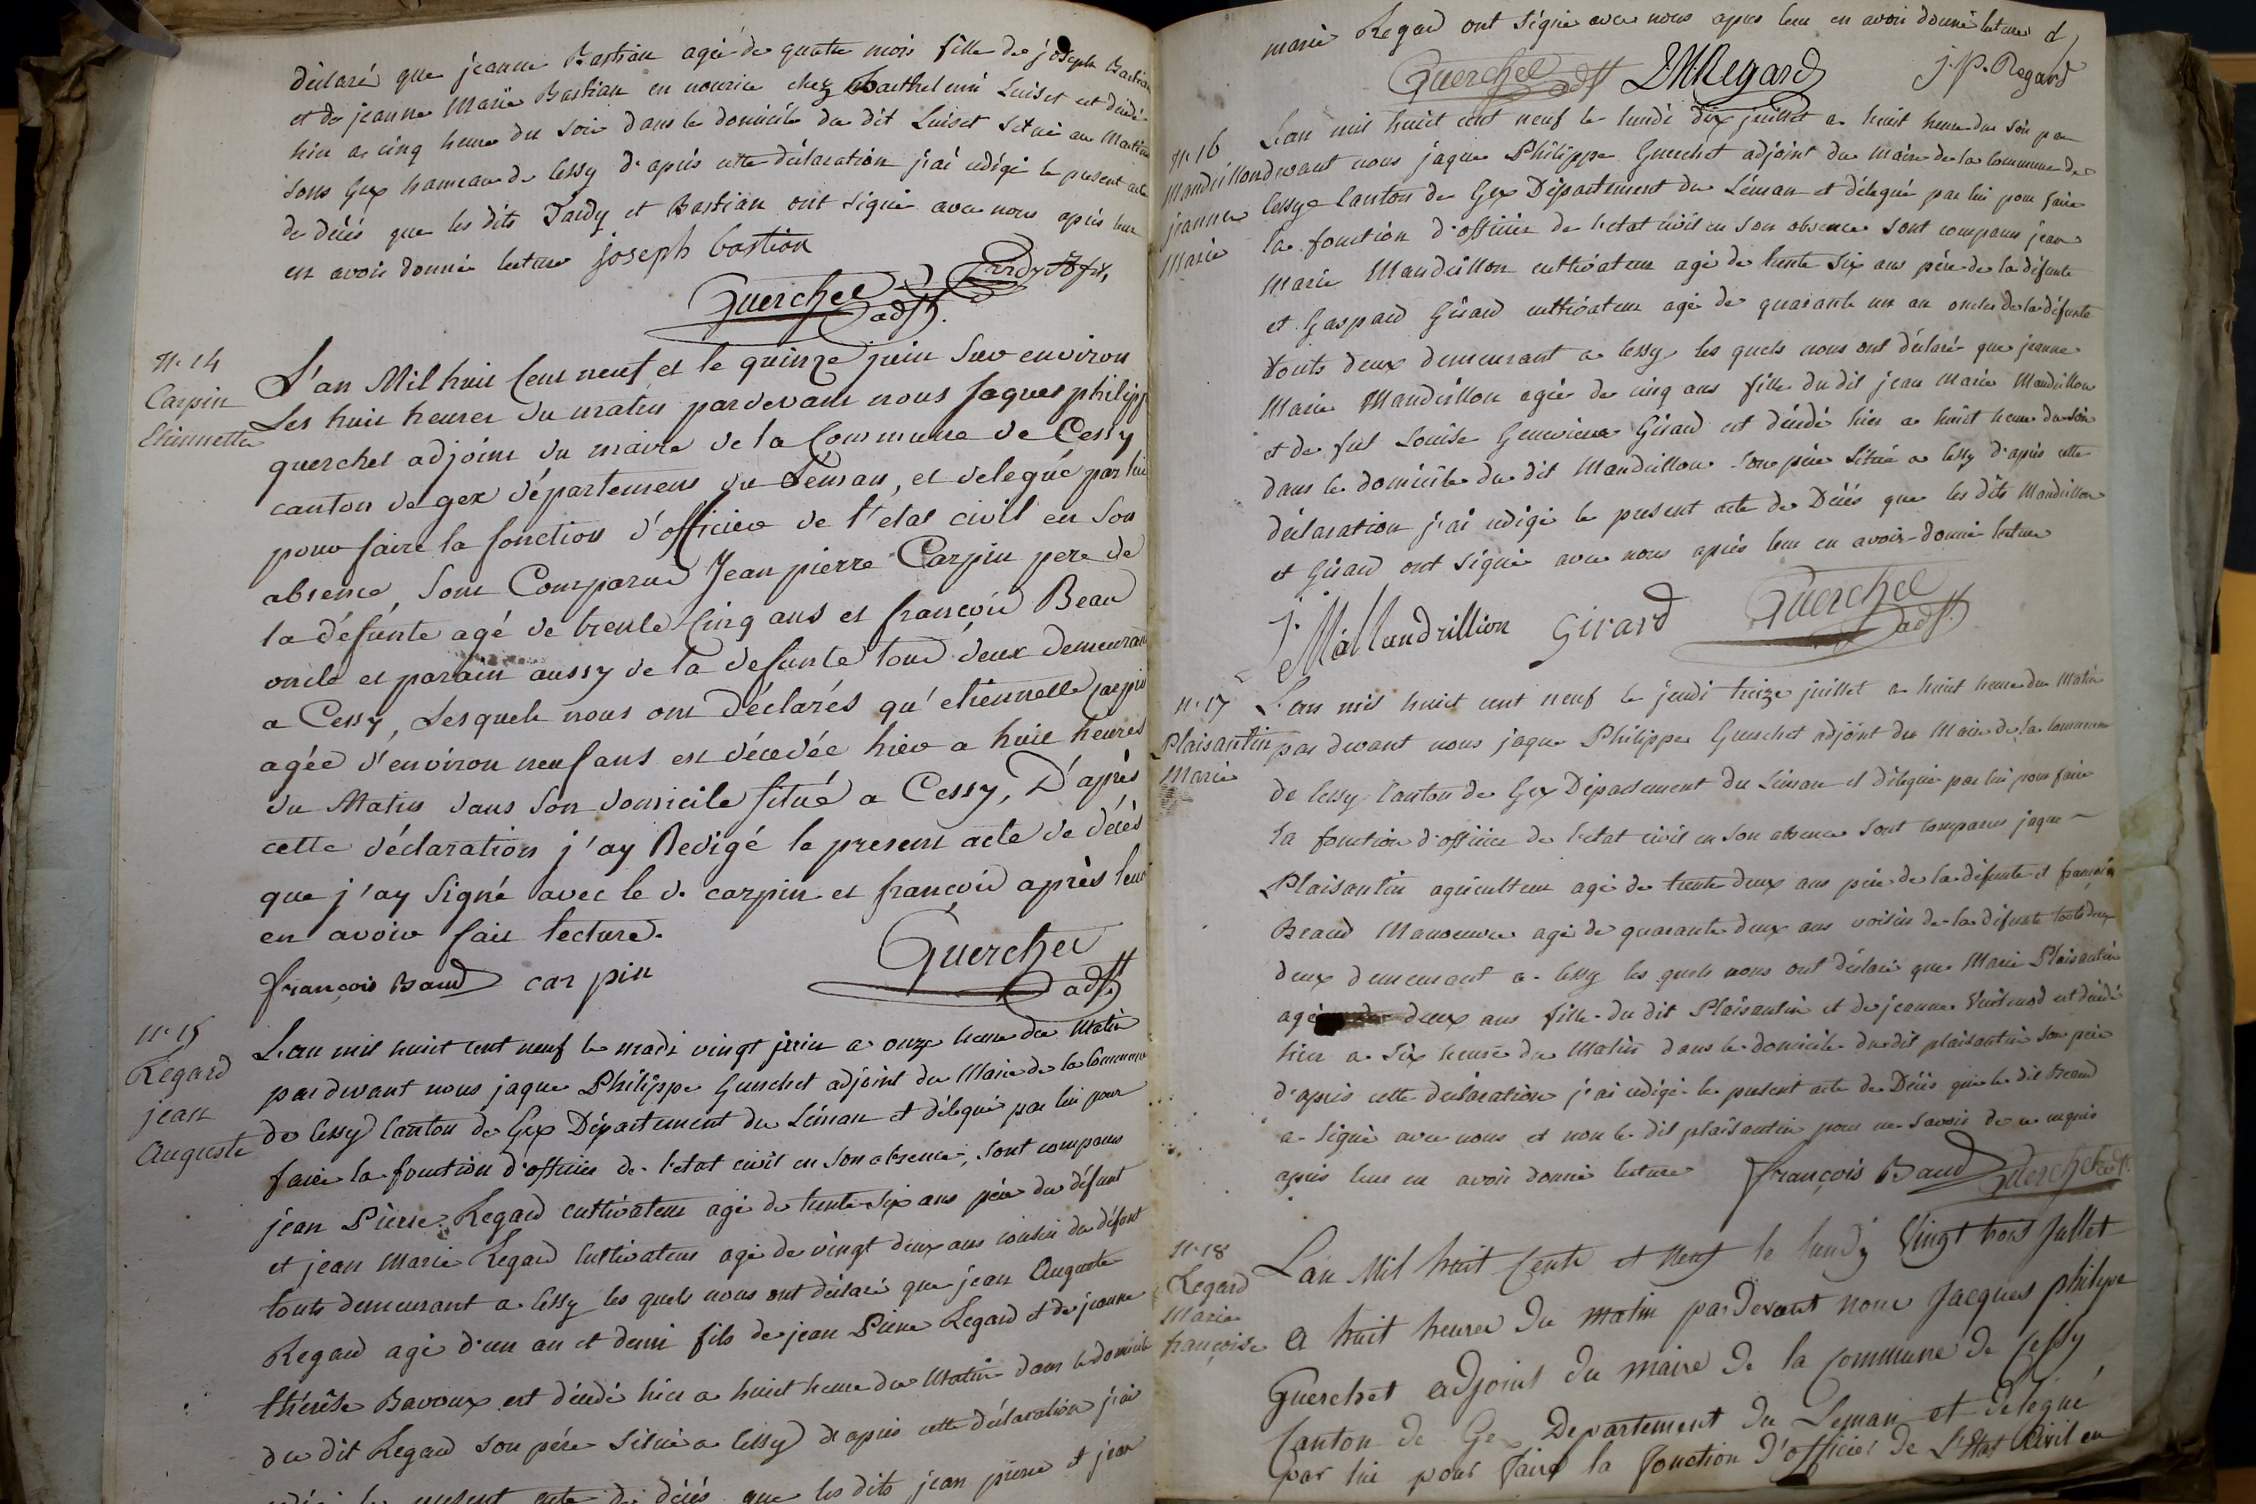 déclaré que jeanne Bastian agée de quatre mois fille de joseph Bastian
et de jeanne Marie Bastian en nourice chez Barthelemi Luiset est décédé
hier a cinq heure du soir dans le domicile du dit Luiset situé au
sous Gex hameau de Cessy d'après cette déclaration j'ai rédigé le present acte
de décés que les dits Tardy et Bastian ont signé avec nous aprés leur
en avoir donné lecture joseph bastian
Guerchet adjt.
N.º 14
Carpin
Etiennette
L'an Mil huit Cent neuf et le quinze juin sur environ
Les huit heures du matin pardevant nous Jaques philippe
querchet adjoint du maire de la Commune de Cessy
canton de gex département du Léman, et delegué par lui
pour faire la fonction d'officier de l'etat civil en son
absence, sont Comparus Jean pierre Carpin pere de
la défunte agé de trente Cinq ans et françois Beau
oncle et parain aussy de la defunte tous deux demeurant
a Cessy, Lesquels nous ont déclarés qu'etiennette carpin
agée d'environ neuf ans est décedée hier a huit heures
du Matin dans son domicile situé a Cessy, D'après
cette déclaration j'ay Redigé le present acte de décès
que j'ay signé avec le d. carpin et françois après leur
en avoir fait lecture.
françois Baud carpin Guerchet adjt.
N.º 15
Regard
jean
Auguste
L'an mil huit cent neuf le mardi vingt juin a onze heure du Matin
par devant nous jaque Philippe Guerchet adjoint du Maire de la Commune
de Cessy Canton de Gex Département du Léman et délegué par lui pour
faire la fonction d'officier de l'etat civil en son absence, sont comparus
jean Pierre Regard cultivateur agé de trente six ans pére du défunt
et jean Marie Regard cultivateur agé de vingt deux ans cousin du défunt
touts demeurant a Cessy les quels nous ont déclaré que jean Auguste
Regard agé d'un an et demi fils de jean Pierre Regard et de jeanne
thérése Bavoux est décédé hier a huit heure du Matin dans le domicile
du dit Regard son pére situé a Cessy d'apres cette déclaration j'ai
rédigé le present acte de décés que les dits jean pierre et jean
marie Regard ont signé avec nous apres leur en avoir donné lecture
Guerchet adjt J.M. Regard J. P. Regard
N.º 16
Mandrillon
jeanne
Marie
L'an mil huit cent neuf le lundi dix juillet a huit heure du soir par
devant nous jaque Philippe Guerchet adjoint du Maire de la Commune de
Cessy Canton de Gex Département du Léman et délegué par lui pour faire
la fonction d'officier de l'etat civil en son absence sont comparus jean
Marie Mandrillon cultivateur agé de trente six ans pére de la défunte
et Gaspard Girard cultivateur agé de quarante un an oncle de la défunte
touts deux demeurant a Cessy les quels nous ont déclaré que jeanne
Marie Mandrillon agée de cinq ans fille du dit jean Marie Mandrillon
et de fut Louise Genevieve Girard est décédé hier a huit heure du soir
dans le domicile du dit Mandrillon son pére situé a Cessy d'aprés cette
déclaration j'ai rédigé le present acte de Décés que les dits Mandrillon
et Girard ont signé avec nous aprés leur en avoir donné lecture
J. M. Mandrillion Girard Guerchet adjt.
N.º 17
Plaisantin
Marie
L'an mil huit cent neuf le jeudi treize juillet a huit heure du Matin
par devant nous jaque Philippe Guerchet adjoint du Maire de la Commune
de Cessy Canton de Gex Département du Léman et délegué par lui pour faire
la fonction d'officier de l'etat civil en son absence sont comparus jaque
Plaisantin agriculteur agé de trente deux ans pére de la défunte et françois
Beaud Manoeuvre agé de quarante deux ans voisin de la défunte touts deux
deux demeurant a Cessy les quels nous ont déclaré que Marie Plaisantin
agée deux ans fille du dit Plaisantin et de jeanne est décédé
hier a six heure du Matin dans le domicile du dit plaisantin son pére
d'aprés cette declaration j'ai rédigé le present acte de Décés que le dit Beaud
a signé avec nous et non le dit plaisantin pour ne savoir de ce requis
aprés leur en avoir donné lecture françois Baud Guerchet adjt.
N.º 18
Regard
Marie
françoise
L'an Mil huit Cents et Neuf le lundy Vingt trois Jullet
a huit heures du matin pardevant nous Jacques philipe
Guerchet adjoint du maire de la Commune de Cessy
Canton de Gex Departement du Leman et delegué
par lui pour faire la fonction d'officier de L'Etat Civil en